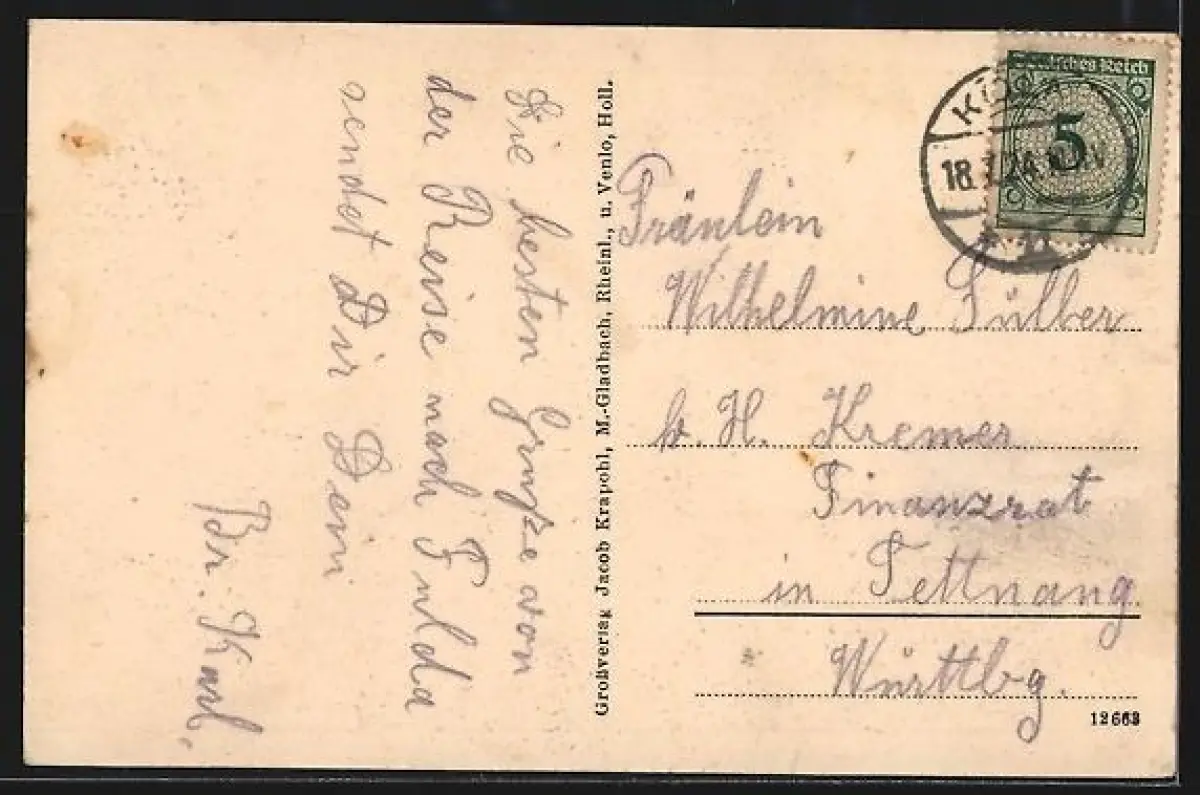 Die besten Grüße von
der Reise nach Fulda
sendet Dir Dein
Br. Karl.
Großverlag Jacob Krapohl, M.-Gladbach, Rheinl., u. Venlo, Holl.
Deutsches Reich
5
18. 24
Fräulein
Wilhelmine Fülber
b. H. Kremer
Finanzrat
in Tettnang
Württbg.
12663